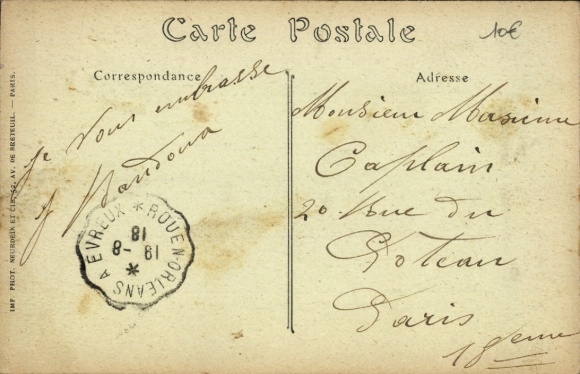 Carte Postale
10€
Correspondance
Adresse
Je vous embrasse
Monsieur Maxime
Caplain
20 Rue du
Poteau
Paris
18eme
EVREUX * ROUEN-ORLEANS A *
18
18 -8
IMP. PHOT. NEURDEIN ET CIE. 52, AV. DE BRETEUIL. — PARIS.